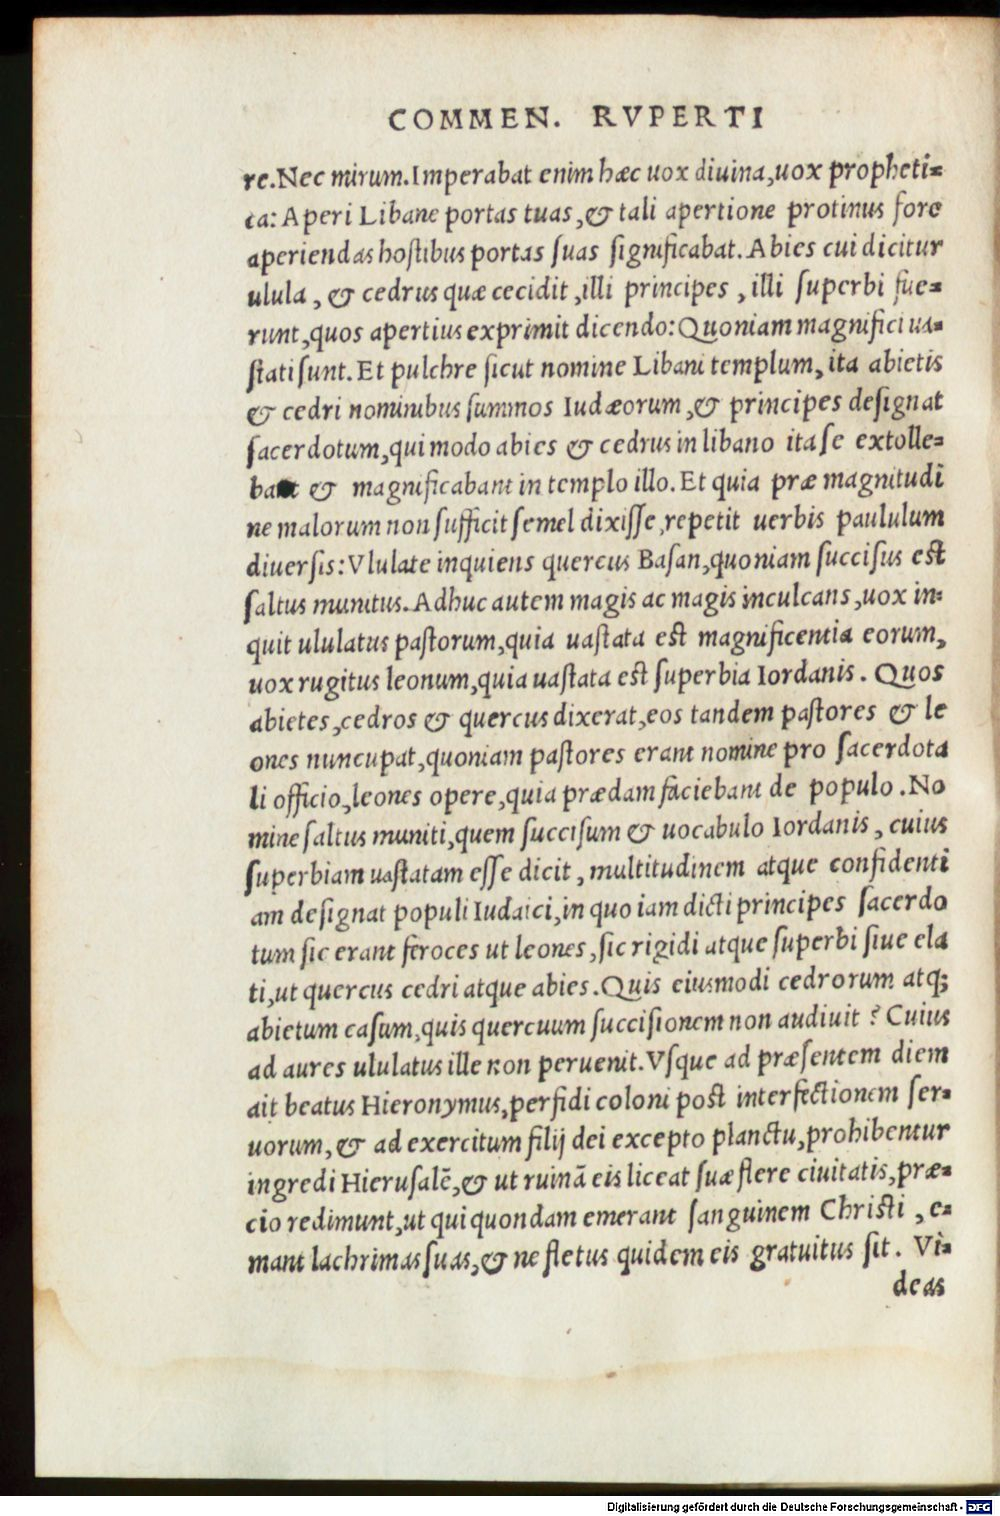 COMMEN. RVPERTI
re. Nec mirum. Imperabat enim hæc uox diuina, uox propheti-
ca: Aperi Libane portas tuas, & tali apertione protinus fore
aperiendas hostibus portas suas significabat. Abies cui dicitur
ulula, & cedrus quæ cecidit, illi principes, illi superbi fue-
runt, quos apertius exprimit dicendo: Quoniam magnifici ua-
stati sunt. Et pulchre sicut nomine Libani templum, ita abietis
& cedri nominibus summos Iudæorum, & principes designat
sacerdotum, qui modo abies & cedrus in libano ita se extolle-
bant & magnificabant in templo illo. Et quia præ magnitudi
ne malorum non sufficit semel dixisse, repetit uerbis paululum
diuersis: Vlulate inquiens quercus Basan, quoniam succisus est
saltus munitus. Adhuc autem magis ac magis inculcans, uox in-
quit ululatus pastorum, quia uastata est magnificentia eorum,
uox rugitus leonum, quia uastata est superbia Iordanis. Quos
abietes, cedros & quercus dixerat, eos tandem pastores & le
ones nuncupat, quoniam pastores erant nomine pro sacerdota
li officio, leones opere, quia prædam faciebant de populo. No
mine saltus muniti, quem succisum & uocabulo Iordanis, cuius
superbiam uastatam esse dicit, multitudinem atque confidenti
am designat populi Iudaici, in quo iam dicti principes sacerdo
tum sic erant feroces ut leones, sic rigidi atque superbi siue ela
ti, ut quercus cedri atque abies. Quis eiusmodi cedrorum atq;
abietum casum, quis quercuum succisionem non audiuit? Cuius
ad aures ululatus ille non peruenit. Vsque ad præsentem diem
ait beatus Hieronymus, perfidi coloni post interfectionem ser-
uorum, & ad exercitum filij dei excepto planctu, prohibentur
ingredi Hierusalē, & ut ruinā eis liceat suæ flere ciuitatis, præ-
cio redimunt, ut qui quondam emerant sanguinem Christi, e-
mant lachrimas suas, & ne fletus quidem eis gratuitus sit. Vi-
deas
Digitalisierung gefördert durch die Deutsche Forschungsgemeinschaft - DFG